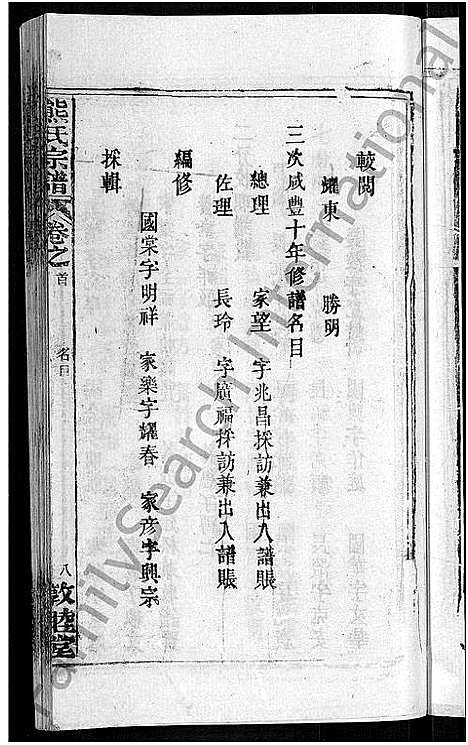 較閱
耀東 勝明
三次咸豐十年修譜名目
總理 家望 字兆昌採訪兼出入譜賬
佐理 長玲 字廣福採訪兼出入譜賬
編修
國棠字明祥 家樂字耀春 家彥字興宗
採輯
熊氏宗譜 卷之首 名目 八 敦睦堂
FamilySearch International